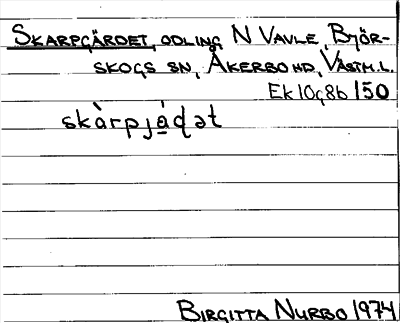 SKARPGÄRDET, ODLING N VAVLE, BJÖR-
SKOGS SN, ÅKERBO HD, VÄSTM.L.
Ek 10g8b 150
skàrpjá̠ɖət
BIRGITTA NURBO 1974